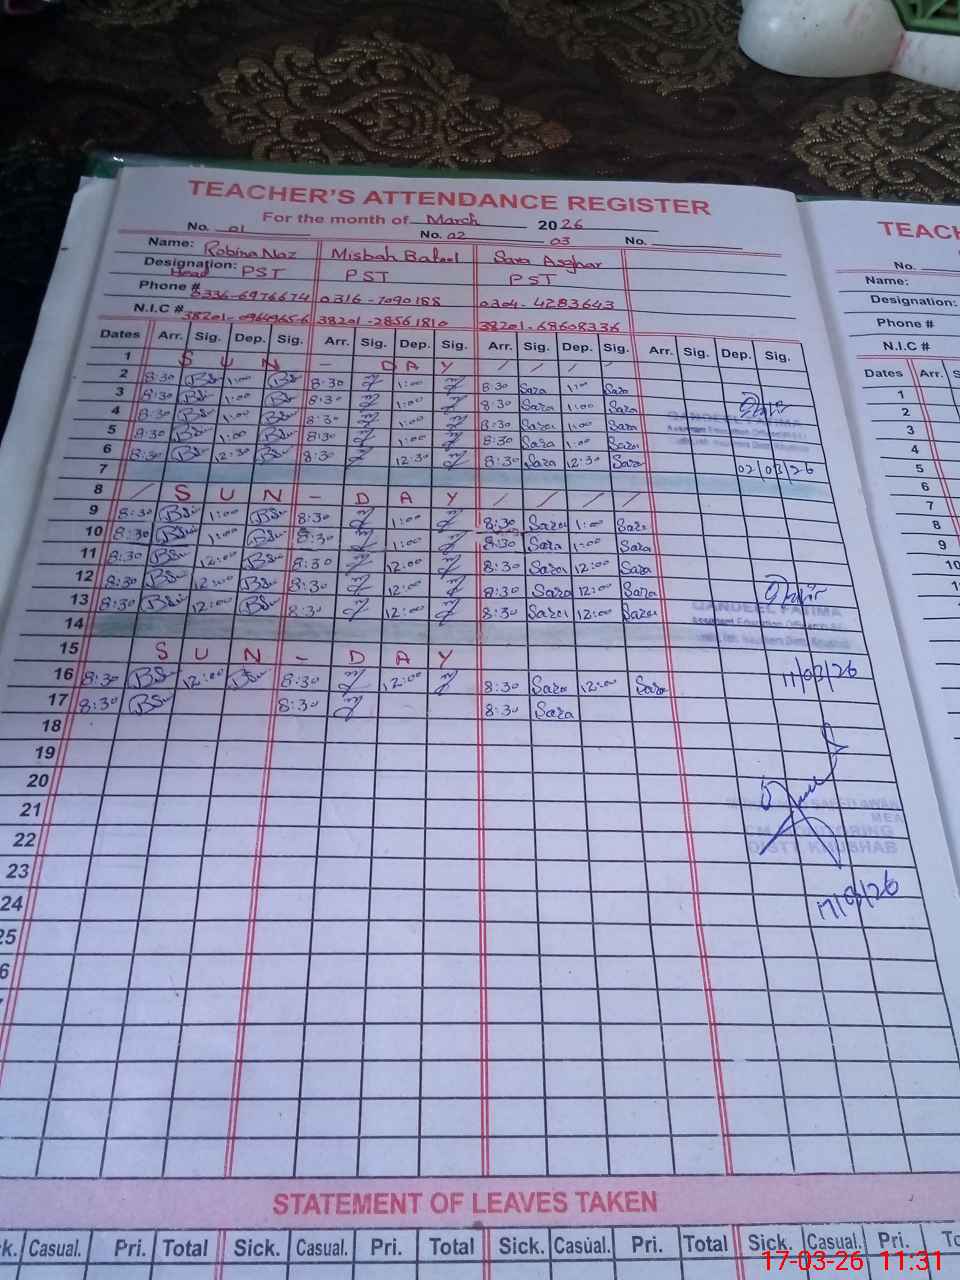 TEACHER'S ATTENDANCE REGISTER
For the month of March 2026
No. 01 No. 02 03 No.
Name: Robina Naz Misbah Batool Sara Asghar
Designation: Head PST PST PST
Phone # 0336-6976674 0316-7090188 0304-4283643
N.I.C # 38201-0964965-6 38201-28561810 38201-68608336
Dates Arr. Sig. Dep. Sig. Arr. Sig. Dep. Sig. Arr. Sig. Dep. Sig. Arr. Sig. Dep. Sig.
1 S U N - D A Y / / / /
2 8:30 1:00 8:30 1:00 8:30 Sara 1:00 Sara
3 8:30 1:00 8:30 1:00 8:30 Sara 1:00 Sara
4 8:30 1:00 8:30 1:00 8:30 Sara 1:00 Sara
5 8:30 1:00 8:30 1:00 8:30 Sara 1:00 Sara
6 8:30 12:30 8:30 12:30 8:30 Sara 12:30 Sara
7
02/03/26
8 / S U N - D A Y / / / /
9 8:30 1:00 8:30 1:00 8:30 Sara 1:00 Sara
10 8:30 1:00 8:30 1:00 8:30 Sara 1:00 Sara
11 8:30 12:00 8:30 12:00 8:30 Sara 12:00 Sara
12 8:30 12:00 8:30 12:00 8:30 Sara 12:00 Sara
13 8:30 12:00 8:30 12:00 8:30 Sara 12:00 Sara
QANDEEL FATIMA
14
15 S U N - D A Y
16 8:30 12:00 8:30 12:00 8:30 Sara 12:00 Sara
11/03/26
17 8:30 8:30 8:30 Sara
18
19
20
21
22
DISTT KHUSHAB
23
24
17/03/26
25
STATEMENT OF LEAVES TAKEN
Casual. Pri. Total Sick. Casual. Pri. Total Sick. Casual. Pri. Total Sick. Casual. Pri.
TEACH
No.
Name:
Designation:
Phone #
N.I.C #
Dates Arr.
1
2
3
4
5
6
7
8
9
10
17-03-26 11:31